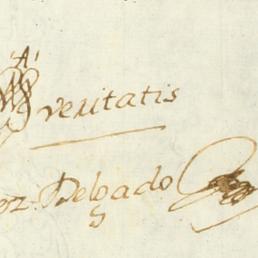 A
veritatis
ez. Delgado